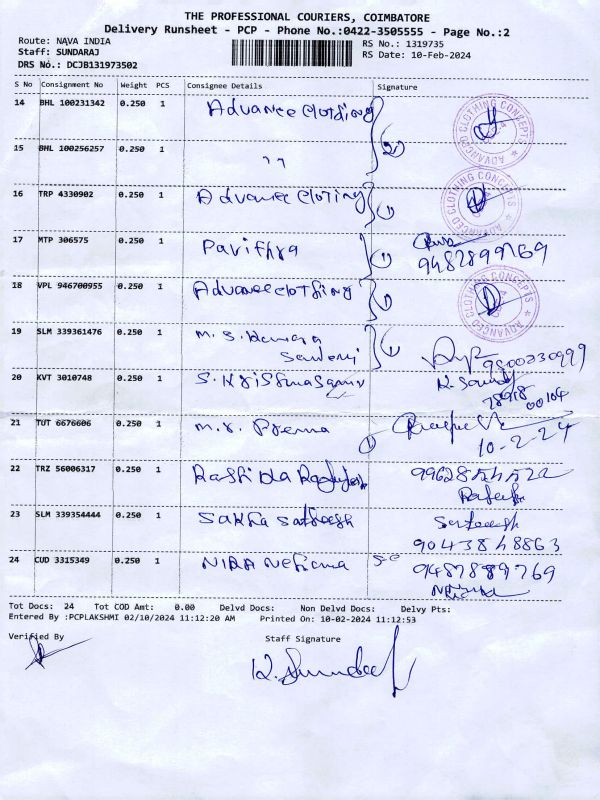 THE PROFESSIONAL COURIERS, COIMBATORE
Delivery Runsheet - PCP - Phone No.:0422-3505555 - Page No.:2
Route: NAVA INDIA
Staff: SUNDARAJ
DRS No.: DCJB131973502
RS No.: 1319735
RS Date: 10-Feb-2024
S No Consignment No Weight PCS Consignee Details Signature
14 BHL 100231342 0.250 1 Advance Clothing
15 BHL 100256257 0.250 1 " (2)
16 TRP 4330902 0.250 1 Advance Cloting (1)
17 MTP 306575 0.250 1 Pavithra (1) 9487899769
18 VPL 946700955 0.250 1 Advance Clothing (1)
19 SLM 339361476 0.250 1 M. S. (1)
20 KVT 3010748 0.250 1 S.
21 TUT 6676606 0.250 1 M. Prema (1) 10-2-24
22 TRZ 56006317 0.250 1
23 SLM 339354444 0.250 1 Satheesh
9043848863
24 CUD 3315349 0.250 1 9487899769
ADVANCED CLOTHING CONCEPTS
ADVANCED CLOTHING CONCEPTS
ADVANCED CLOTHING CONCEPTS
Tot Docs: 24 Tot COD Amt: 0.00 Delvd Docs: Non Delvd Docs: Delvy Pts:
Entered By :PCPLAKSHMI 02/10/2024 11:12:20 AM Printed On: 10-02-2024 11:12:53
Verified By
Staff Signature